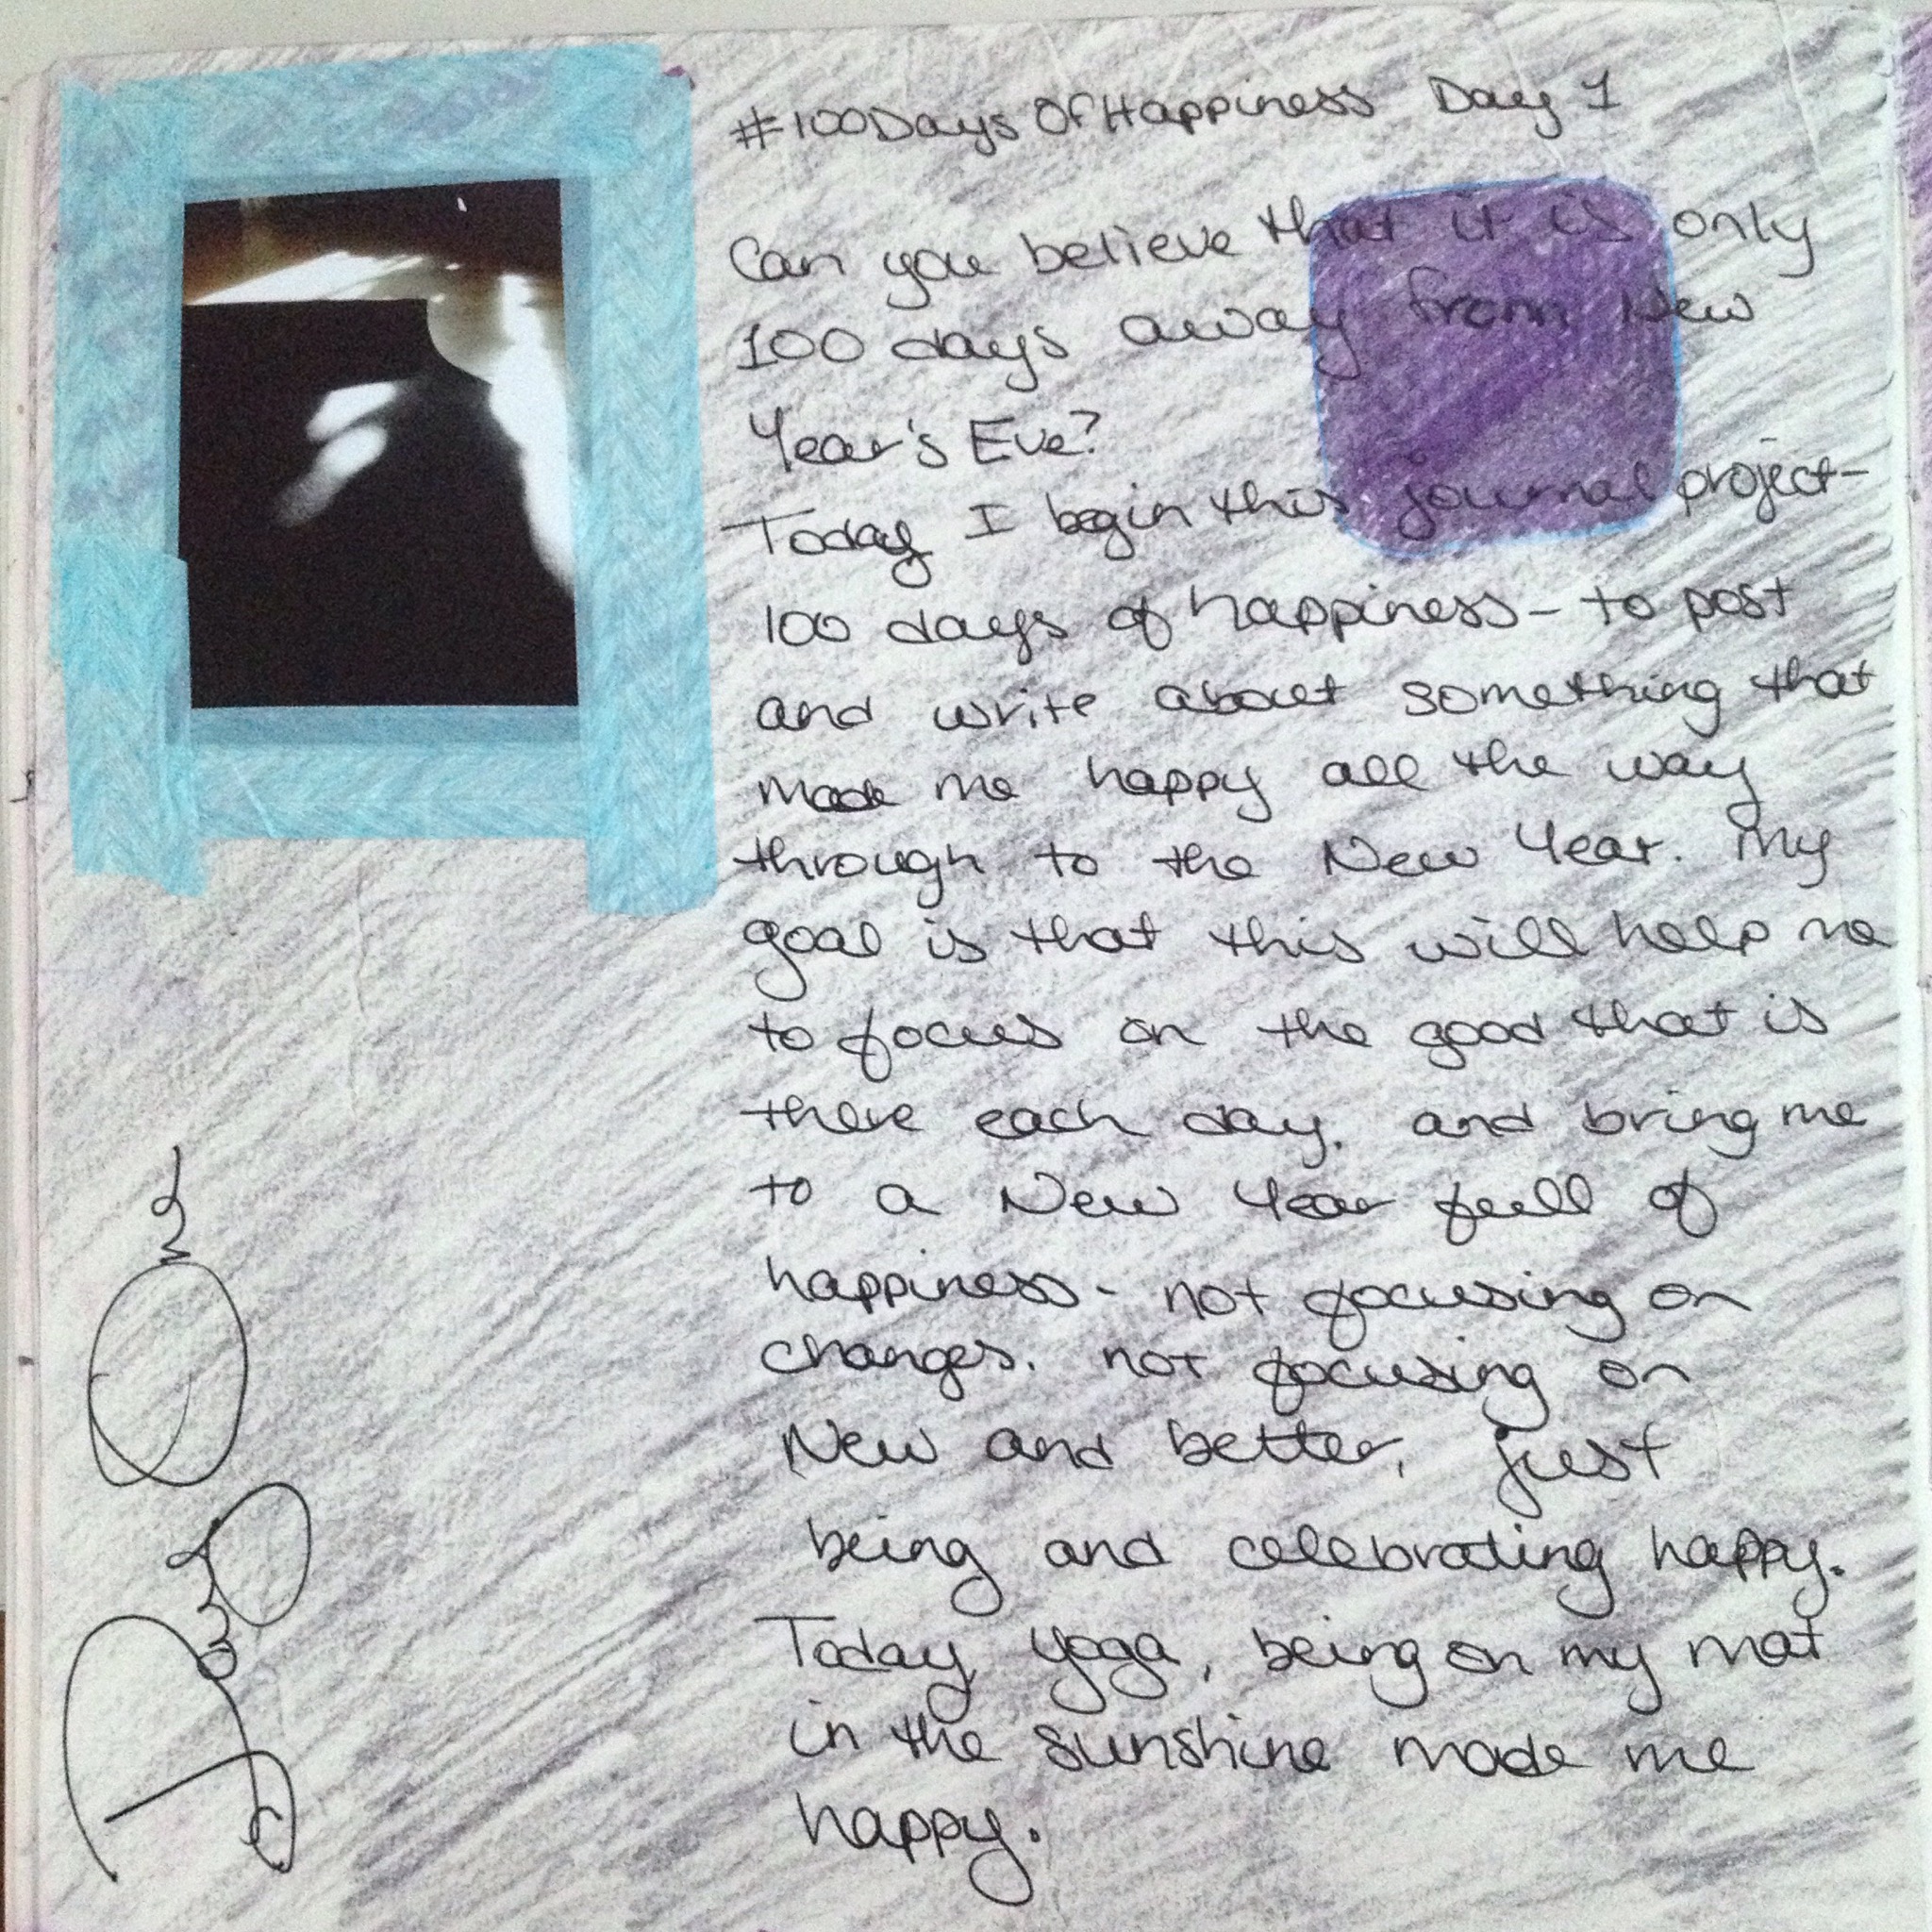 #100DaysOfHappiness Day 1
Can you believe that it is only
100 days away from New
Year's Eve?
Today I begin this journal project-
100 days of happiness - to post
and write about something that
made me happy all the way
through to the New Year. My
goal is that this will help me
to focus on the good that is
there each day. and bring me
to a New Year full of
happiness - not focusing on
changes. not focusing on
New and better, just
being and celebrating happy.
Today, yoga, being on my mat
in the sunshine made me
happy.